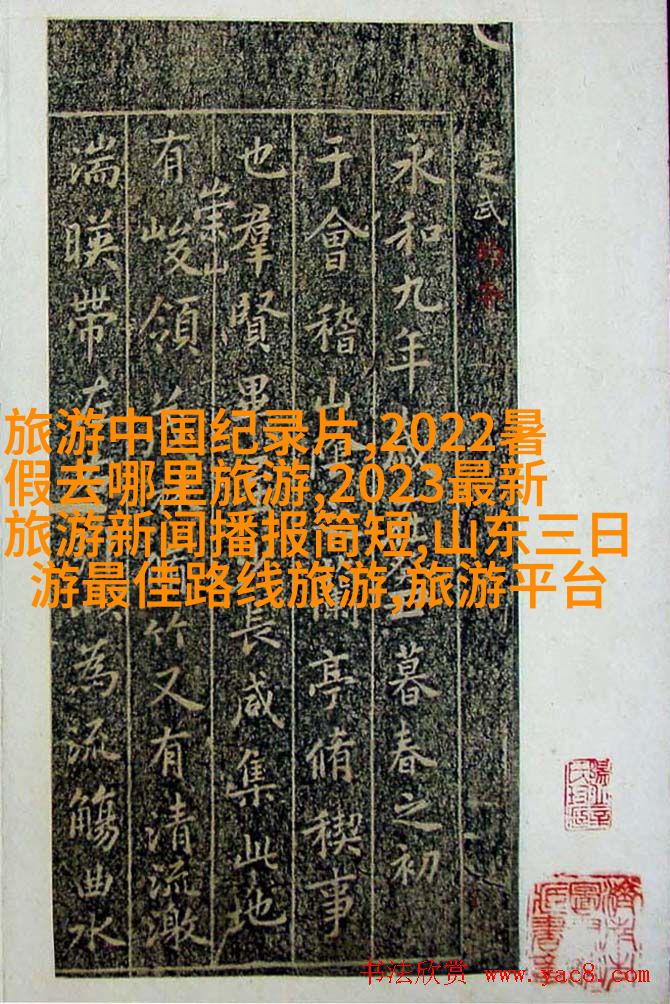 定武
永和九年歲丑暮春之初
于會稽山蘭亭脩稧事
也羣賢畢長咸集此地
崇山
有峻領竹又有清流激
湍暎帶左為流觴曲水
旅游中国纪录片,2022暑
假去哪里旅游,2023最新
旅游新闻播报简短,山东三日
游最佳路线旅游,旅游平台
书法欣赏 www.yac8.com